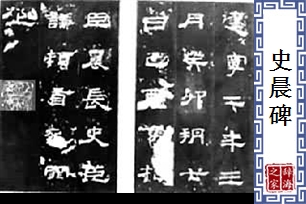 史晨碑
辞海
之家
建寧二年三
月癸卯朔七
日己酉魯相
臣晨長史臣
謙頓首死罪